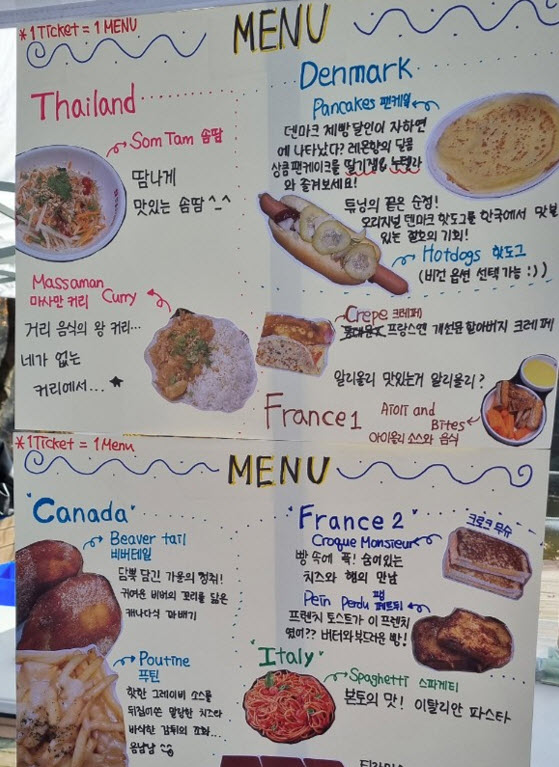 *1Ticket = 1MENU
MENU
Thailand
Som Tam 솜땀
땀나게
맛있는 솜땀 ^_^
Massaman
마사만 커리 Curry
거리 음식의 왕 커리...
네가 없는
커리에서... ★
Denmark
Pancakes 팬케잌
덴마크 제빵 달인이 자하연
에 나타났다? 레몬향의 달콤
상콤 팬케이크를 딸기잼& 누텔라
와 즐겨보세요!
튜닝의 끝은 순정!
오리지널 덴마크 핫도그를 한국에서 맛볼
있는 절호의 기회!
Hotdogs 핫도그
(비건 옵션 선택 가능 :))
Crepe 크레페
프랑스엔 개선문 할아버지 크레페
알리올리 맛있는거 알리올리?
France 1
Aïoli and
Bites
아이올리 소스와 음식
*1Ticket = 1Menu
MENU
"Canada"
Beaver tail
비버테일
담뿍 담긴 가을의 정취!
귀여운 비버의 꼬리를 닮은
캐나다식 꽈배기
Poutine
푸틴
핫한 그레이비 소스를
뒤집어쓴 말랑한 치즈와
바삭한 감튀의 조화...
욤냠냠
"France 2"
크로크 무슈
Croque Monsieur
빵 속에 폭! 숨어있는
치즈와 햄의 만남
Pein Perdu 팽 페르뒤
프렌치 토스트가 이 프렌치
였어?? 버터와 부드러운 빵!
"Italy"
Spaghetti 스파게티
본토의 맛! 이탈리안 파스타